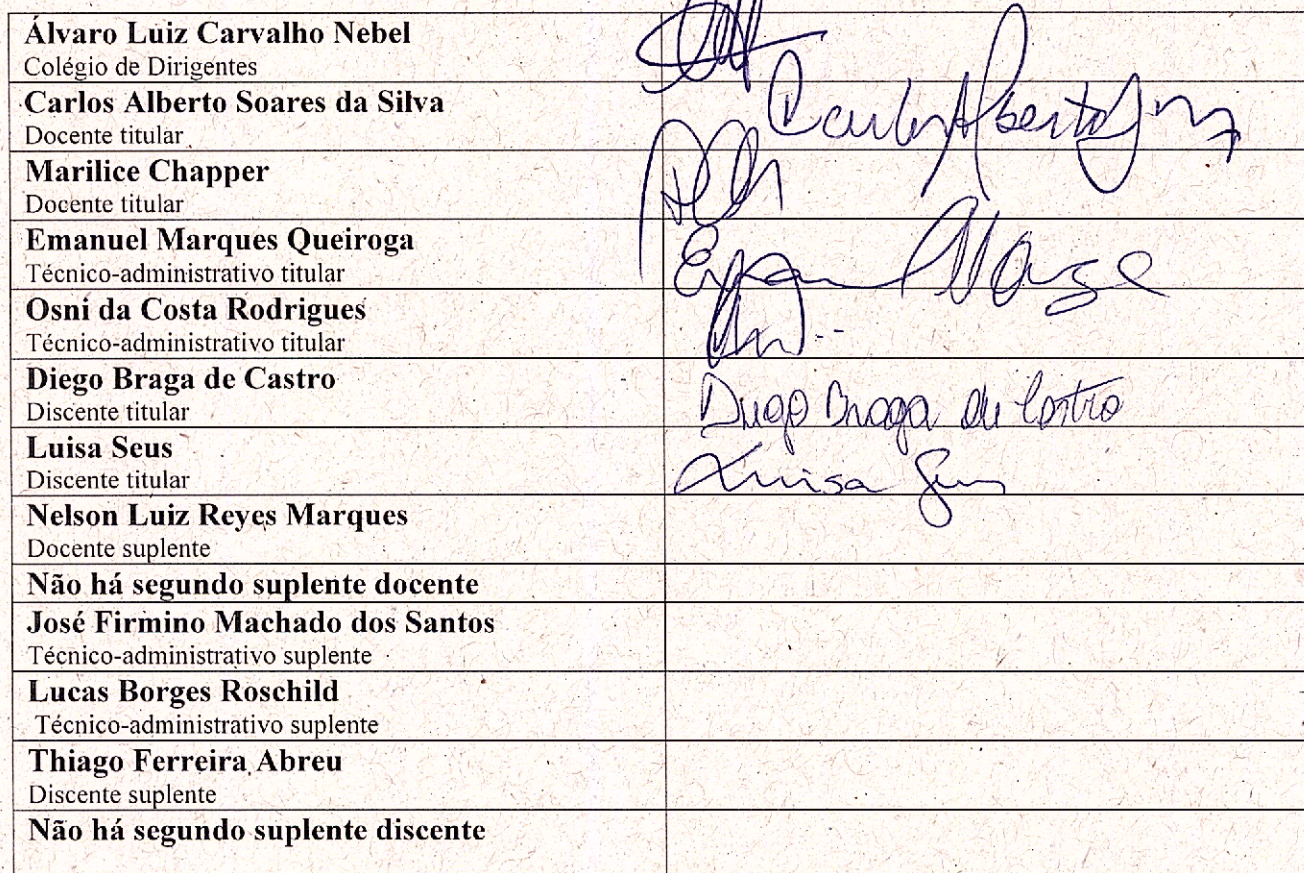 Álvaro Luiz Carvalho Nebel
Colégio de Dirigentes
Carlos Alberto Soares da Silva
Docente titular
Carlos Alberto
Marilice Chapper
Docente titular
Emanuel Marques Queiroga
Técnico-administrativo titular
Osni da Costa Rodrigues
Técnico-administrativo titular
Diego Braga de Castro
Discente titular
Diego Braga de Castro
Luisa Seus
Discente titular
Luisa Seus
Nelson Luiz Reyes Marques
Docente suplente
Não há segundo suplente docente
José Firmino Machado dos Santos
Técnico-administrativo suplente
Lucas Borges Roschild
Técnico-administrativo suplente
Thiago Ferreira Abreu
Discente suplente
Não há segundo suplente discente